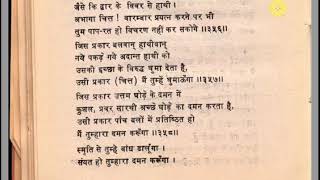 जैसे कि द्वार के विवर से हाथी ।
अभागा चित्त ! बारम्बार प्रयत्न करने पर भी
तुम पाप-रत हो विचरण नहीं कर सकोगे ॥३५६॥
जिस प्रकार बलवान् हाथीवान्
नये पकड़े गये अदान्त हाथी को
उसकी इच्छा के विरुद्ध घुमा देता है,
उसी प्रकार (चित्त) मैं तुम्हें घुमाऊँगा ॥३५७॥
जिस प्रकार उत्तम घोड़े के दमन में
कुशल, प्रवर सारथी अच्छे घोड़े का दमन करता है,
उसी प्रकार पांच बलों में प्रतिष्ठित हो
मैं तुम्हारा दमन करूँगा ॥३५८॥
स्मृति से तुम्हें बांध डालूंगा ।
संयत हो तुम्हारा दमन करूँगा ।